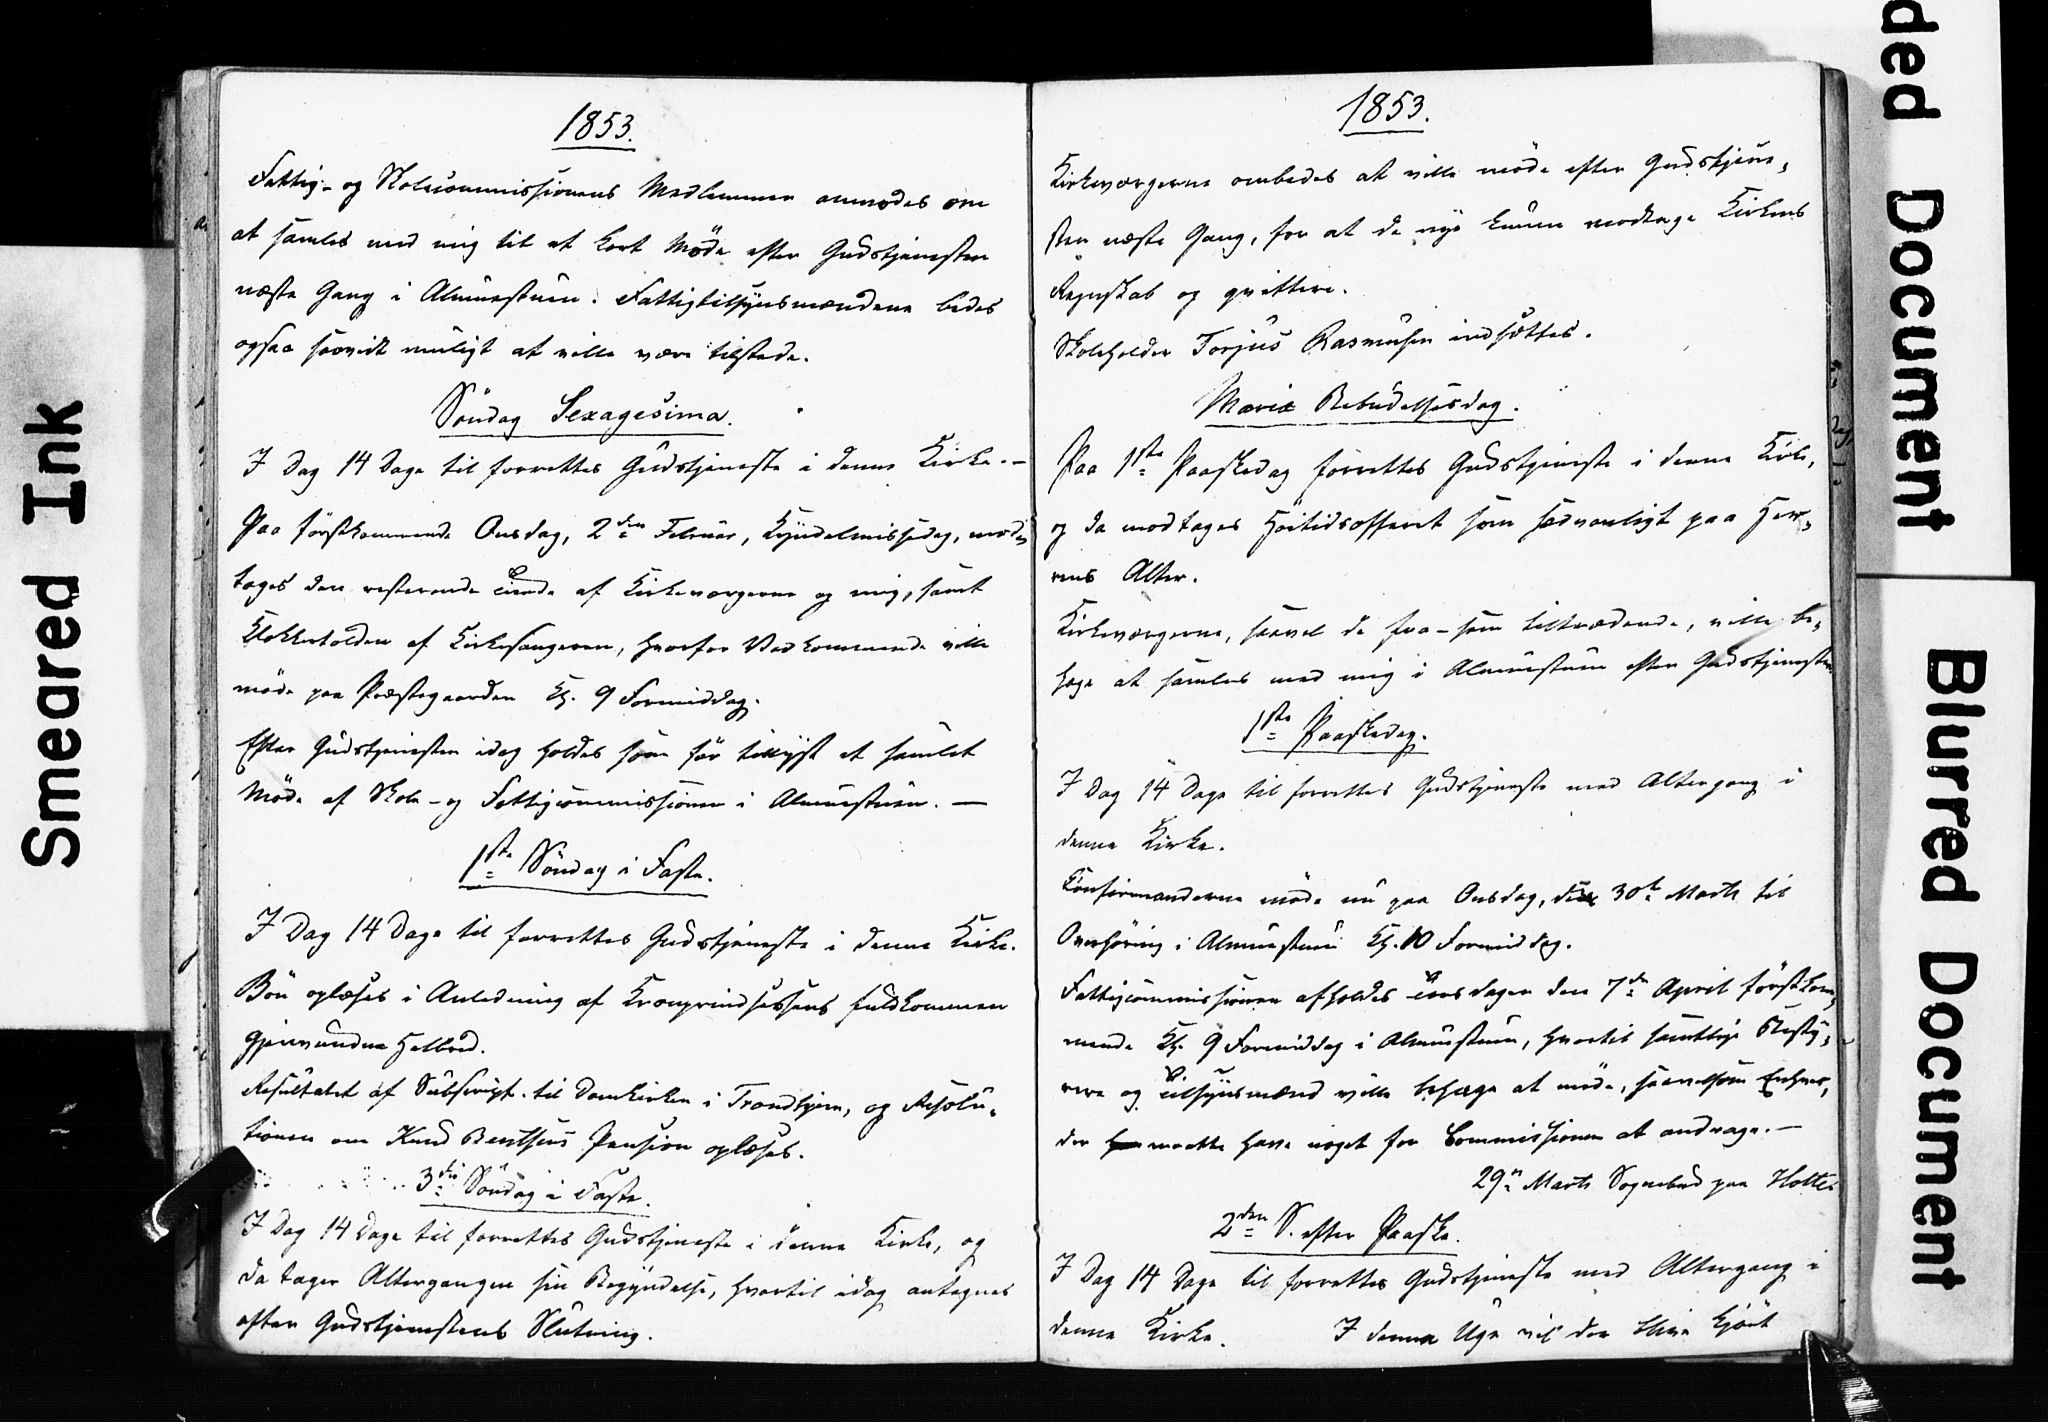 1853.
Fattig- og Skolecommissionens Medlemmer anmodes om
at samles med mig til et kort Möde efter Gudstjenesten
næste Gang i Almuestuen. Fattigtilsynsmændene bedes
ogsaa saavidt muligt at ville være tilstede.
Söndag Sexagesima.
I Dag 14 Dage til forrettes Gudstjeneste i denne Kirke. —
Paa förstkommende Onsdag, 2den Februar, Kyndelmissedag, mod-
tages den resterende Tiende af Kirkeværgerne og mig, samt
Klokkertolden af Kirkesangeren, hvorfor Vedkommende ville
möde paa Præstegaarden Kl. 9 Formiddag.
Efter Gudstjenesten idag holdes som før tillyst et samlet
Möde af Skole- og Fattigcommissionen i Almuestuen. —
1ste Söndag i Faste.
I Dag 14 Dage til forrettes Gudstjeneste i denne Kirke.
Bön oplæses i Anledning af Kronprindsessens fuldkommen
gjenvundne Helbred.
Resultatet af Subscript. til Domkirken i Trondhjem, og Resolu-
tionen om Knud Bentsens Pension oplæses.
3die Söndag i Faste.
I Dag 14 Dage til forrettes Gudstjeneste i denne Kirke, og
da tager Altergangen sin Begyndelse, hvortil idag antegnes
efter Gudstjenestens Slutning.
1853.
Kirkeværgerne ombedes at ville möde efter Gudstjene-
sten næste Gang, for at de nye kunne modtage Kirkens
Regnskab og qvittere.
Skoleholder Torjus Rasmusen indsættes.
Mariæ Bebudelsesdag.
Paa 1ste Paaskedag forrettes Gudstjeneste i denne Kirke,
og da modtages Höitidsofferet som sædvanligt paa Her-
rens Alter.
Kirkeværgerne, saavel de fra- som tiltrædende, ville be-
hage at samles med mig i Almuestuen efter Gudstjenesten
1ste Paaskedag.
I Dag 14 Dage til forrettes Gudstjeneste med Altergang i
denne Kirke.
Confirmanderne möde nu paa Onsdag, den 30te Marts til
Overhöring i Almuestuen Kl. 10 Formiddag.
Fattigcommissionen afholdes Torsdagen den 7de April förstkom-
mende Kl. 9 Formiddag i Almuestuen, hvortil samtlige Besty-
rere og Tilsynsmænd ville behage at möde, saavelsom Enhver,
der maatte have noget for Commissionen at andrage. —
29n Marts Sognebud paa
2den S. efter Paaske.
I Dag 14 Dage til forrettes Gudstjeneste med Altergang i
denne Kirke. I denne Uge vil der blive kjört
Smeared Ink
ded Document
Blurred Document